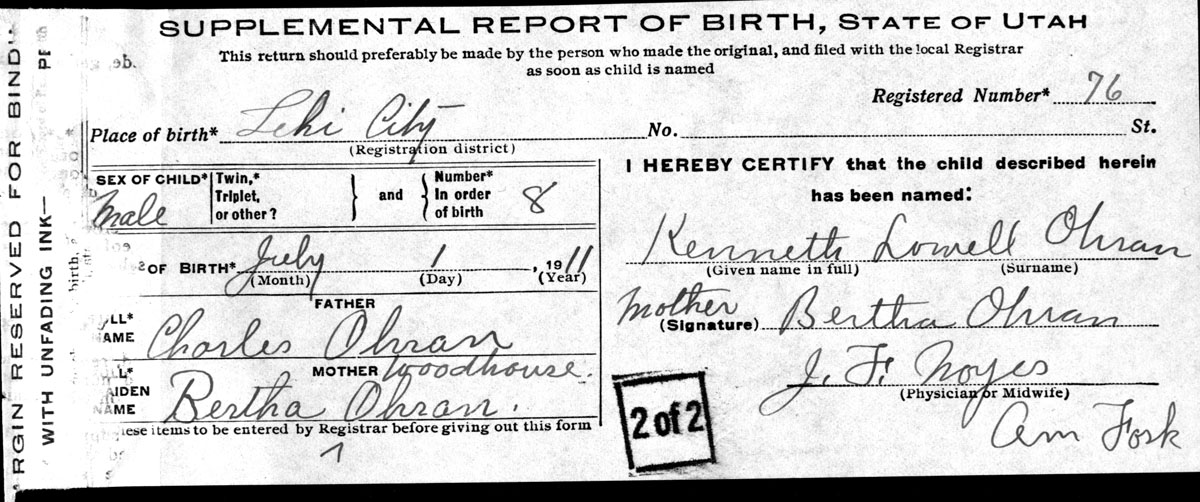 SUPPLEMENTAL REPORT OF BIRTH, STATE OF UTAH
This return should preferably be made by the person who made the original, and filed with the local Registrar
as soon as child is named
Registered Number* 76
Place of birth* Lehi City No. St.
(Registration district)
SEX OF CHILD* Male
Twin,* Triplet, or other?
and
Number* In order of birth 8
OF BIRTH* July 1, 1911
(Month) (Day) (Year)
FATHER
LL* AME Charles Ohran
MOTHER Woodhouse.
L* IDEN NAME Bertha Ohran.
ese items to be entered by Registrar before giving out this form
1
I HEREBY CERTIFY that the child described herein
has been named:
Kenneth Lowell Ohran
(Given name in full) (Surname)
Mother
(Signature) Bertha Ohran
J. F. Noyes
(Physician or Midwife)
Am Fork
2 of 2
RGIN RESERVED FOR BIND
WITH UNFADING INK—